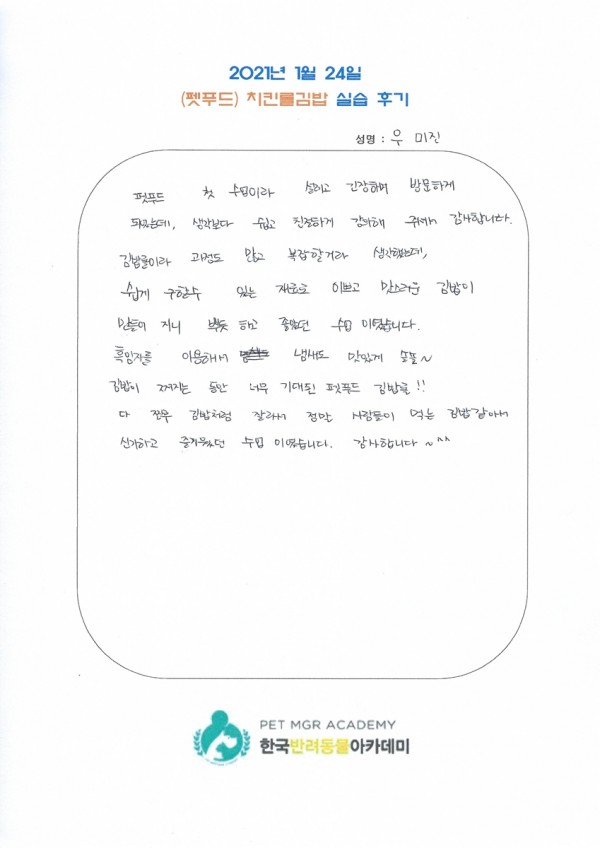 2021년 1월 24일
(펫푸드) 치킨롤김밥 실습 후기
성명 : 우 미진
펫푸드 첫 수업이라 설레고 긴장하며 방문하게
되었는데, 생각보다 쉽고 친절하게 강의해 주셔서 감사합니다.
김밥롤이라 과정도 많고 복잡할거라 생각했는데,
쉽게 구할수 있는 재료로 이쁘고 맛스러운 김밥이
만들어 지니 뿌듯 하고 좋았던 수업 이였습니다.
흑임자를 이용해서 냄새도 맛있게 솔솔~
김밥이 쪄지는 동안 너무 기대된 펫푸드 김밥롤!!
다 찐후 김밥처럼 잘라서 정말 사람들이 먹는 김밥같아서
신기하고 즐거웠던 수업 이였습니다. 감사합니다 ~^^
PET MGR ACADEMY
한국반려동물아카데미